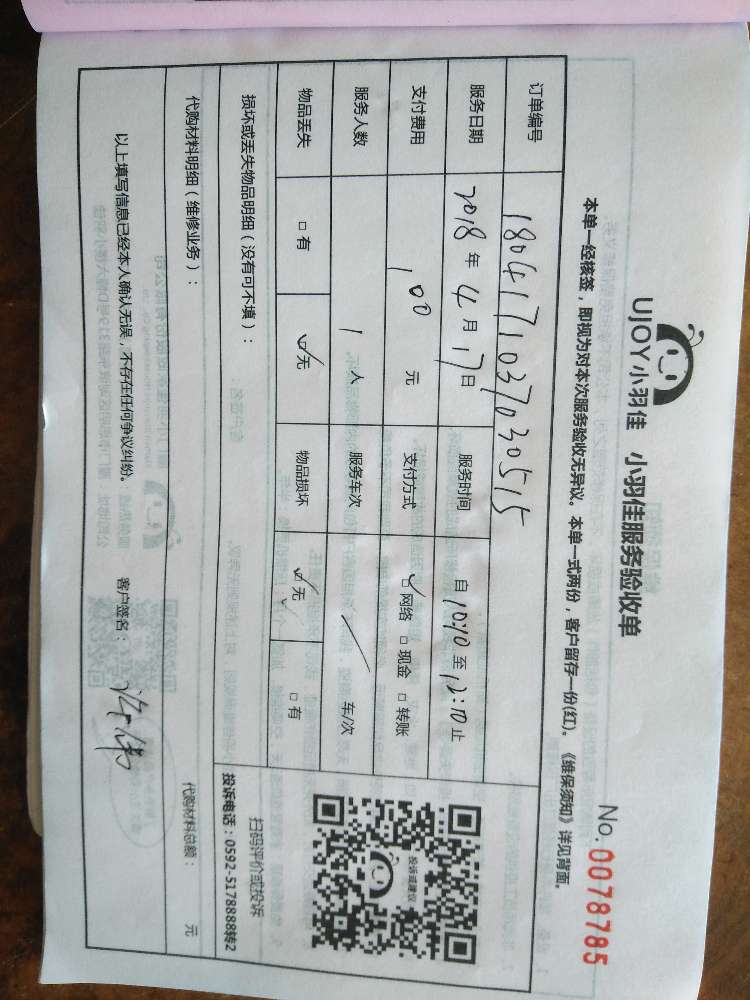 UJOY小羽佳 小羽佳服务验收单
No.0078785
本单一经核签,即视为对本次服务验收无异议。本单一式两份,客户留存一份(红)。《维保须知》详见背面。
订单编号 1804171037030515
服务日期 2018年4月17日 服务时间 自10:10至12:10止
支付费用 100元 支付方式 ☑网络 □现金 □转账
服务人数 1人 服务车次 / 车/次
物品丢失 □有 ☑无 物品损坏 ☑无 □有
投诉或建议
扫码评价或投诉
投诉电话:0592-5178888转2
损坏或丢失物品明细(没有可不填):
代购材料明细(维修业务): 代购材料总额: 元
以上填写信息已经本人确认无误,不存在任何争议纠纷。 客户签名: